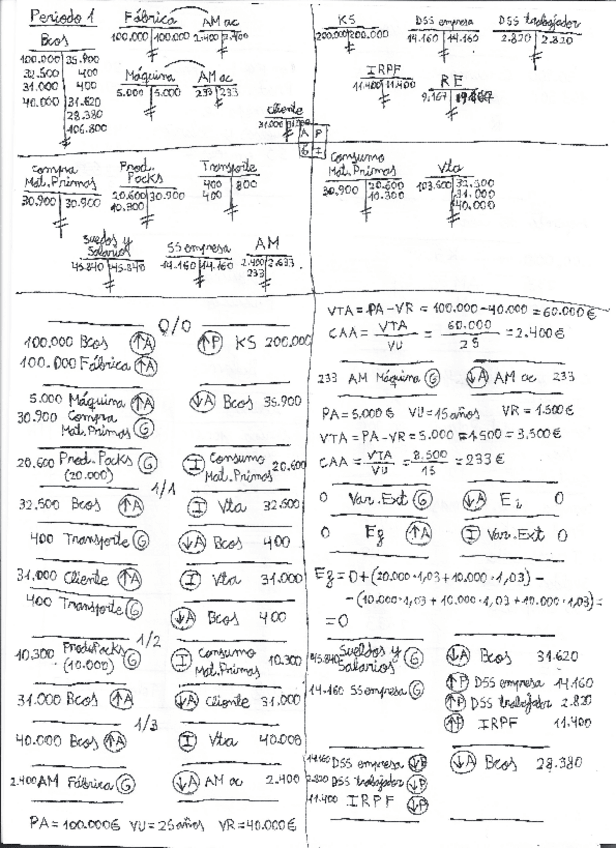 Periodo 1
Bcos
100.000 35.900
32.500 400
31.000 400
40.000 31.620
28.380
106.800
Fábrica
100.000 100.000
AM ac
2.400 2.400
Máquina
5.000 5.000
AM ac
233 233
Cliente
31.000 31.000
A P
G I
KS
200.000 200.000
DSS empresa
14.160 14.160
DSS trabajador
2.820 2.820
IRPF
11.400 11.400
RE
9.167
Compra
Mat. Primas
30.900 30.900
Prod.
Packs
20.600 30.900
10.300
Transporte
400 800
400
Sueldos y
Salarios
45.840 45.840
SS empresa
14.160 14.160
AM
2.400 2.633
233
Consumo
Mat. Primas
30.900 20.600
10.300
Vta
103.500 32.500
31.000
40.000
0/0
100.000 Bcos ↑A ↑P KS 200.000
100.000 Fábrica ↑A
5.000 Máquina ↑A ↓A Bcos 35.900
30.900 Compra
Mat. Primas G
20.600 Prod. Packs G I Consumo
(20.000) Mat. Primas 20.600
1/1
32.500 Bcos ↑A I Vta 32.500
400 Transporte G ↓A Bcos 400
31.000 Cliente ↑A I Vta 31.000
400 Transporte G
↓A Bcos 400
1/2
10.300 Prod. Packs G I Consumo 10.300
(10.000) Mat. Primas
31.000 Bcos ↑A ↓A Cliente 31.000
1/3
40.000 Bcos ↑A I Vta 40.000
2.400 AM Fábrica G ↓A AM ac 2.400
PA = 100.000€ VU = 25 años VR = 40.000€
VTA = PA - VR = 100.000 - 40.000 = 60.000€
CAA = VTA/VU = 60.000/25 = 2.400€
233 AM Máquina G ↓A AM ac 233
PA = 5.000€ VU = 15 años VR = 1.500€
VTA = PA - VR = 5.000 - 1.500 = 3.500€
CAA = VTA/VU = 3.500/15 = 233€
0 Var. Ext G ↓A Ei 0
0 Ef ↑A I Var. Ext 0
Ef = 0 + (20.000·1,03 + 10.000·1,03) -
- (10.000·1,03 + 10.000·1,03 + 10.000·1,03) =
= 0
45.840 Sueldos y
Salarios G ↓A Bcos 31.620
14.160 SS empresa G ↑P DSS empresa 14.160
↑P DSS trabajador 2.820
↑P IRPF 11.400
14.160 DSS empresa ↓P ↓A Bcos 28.380
2.820 DSS trabajador ↓P
11.400 IRPF ↓P